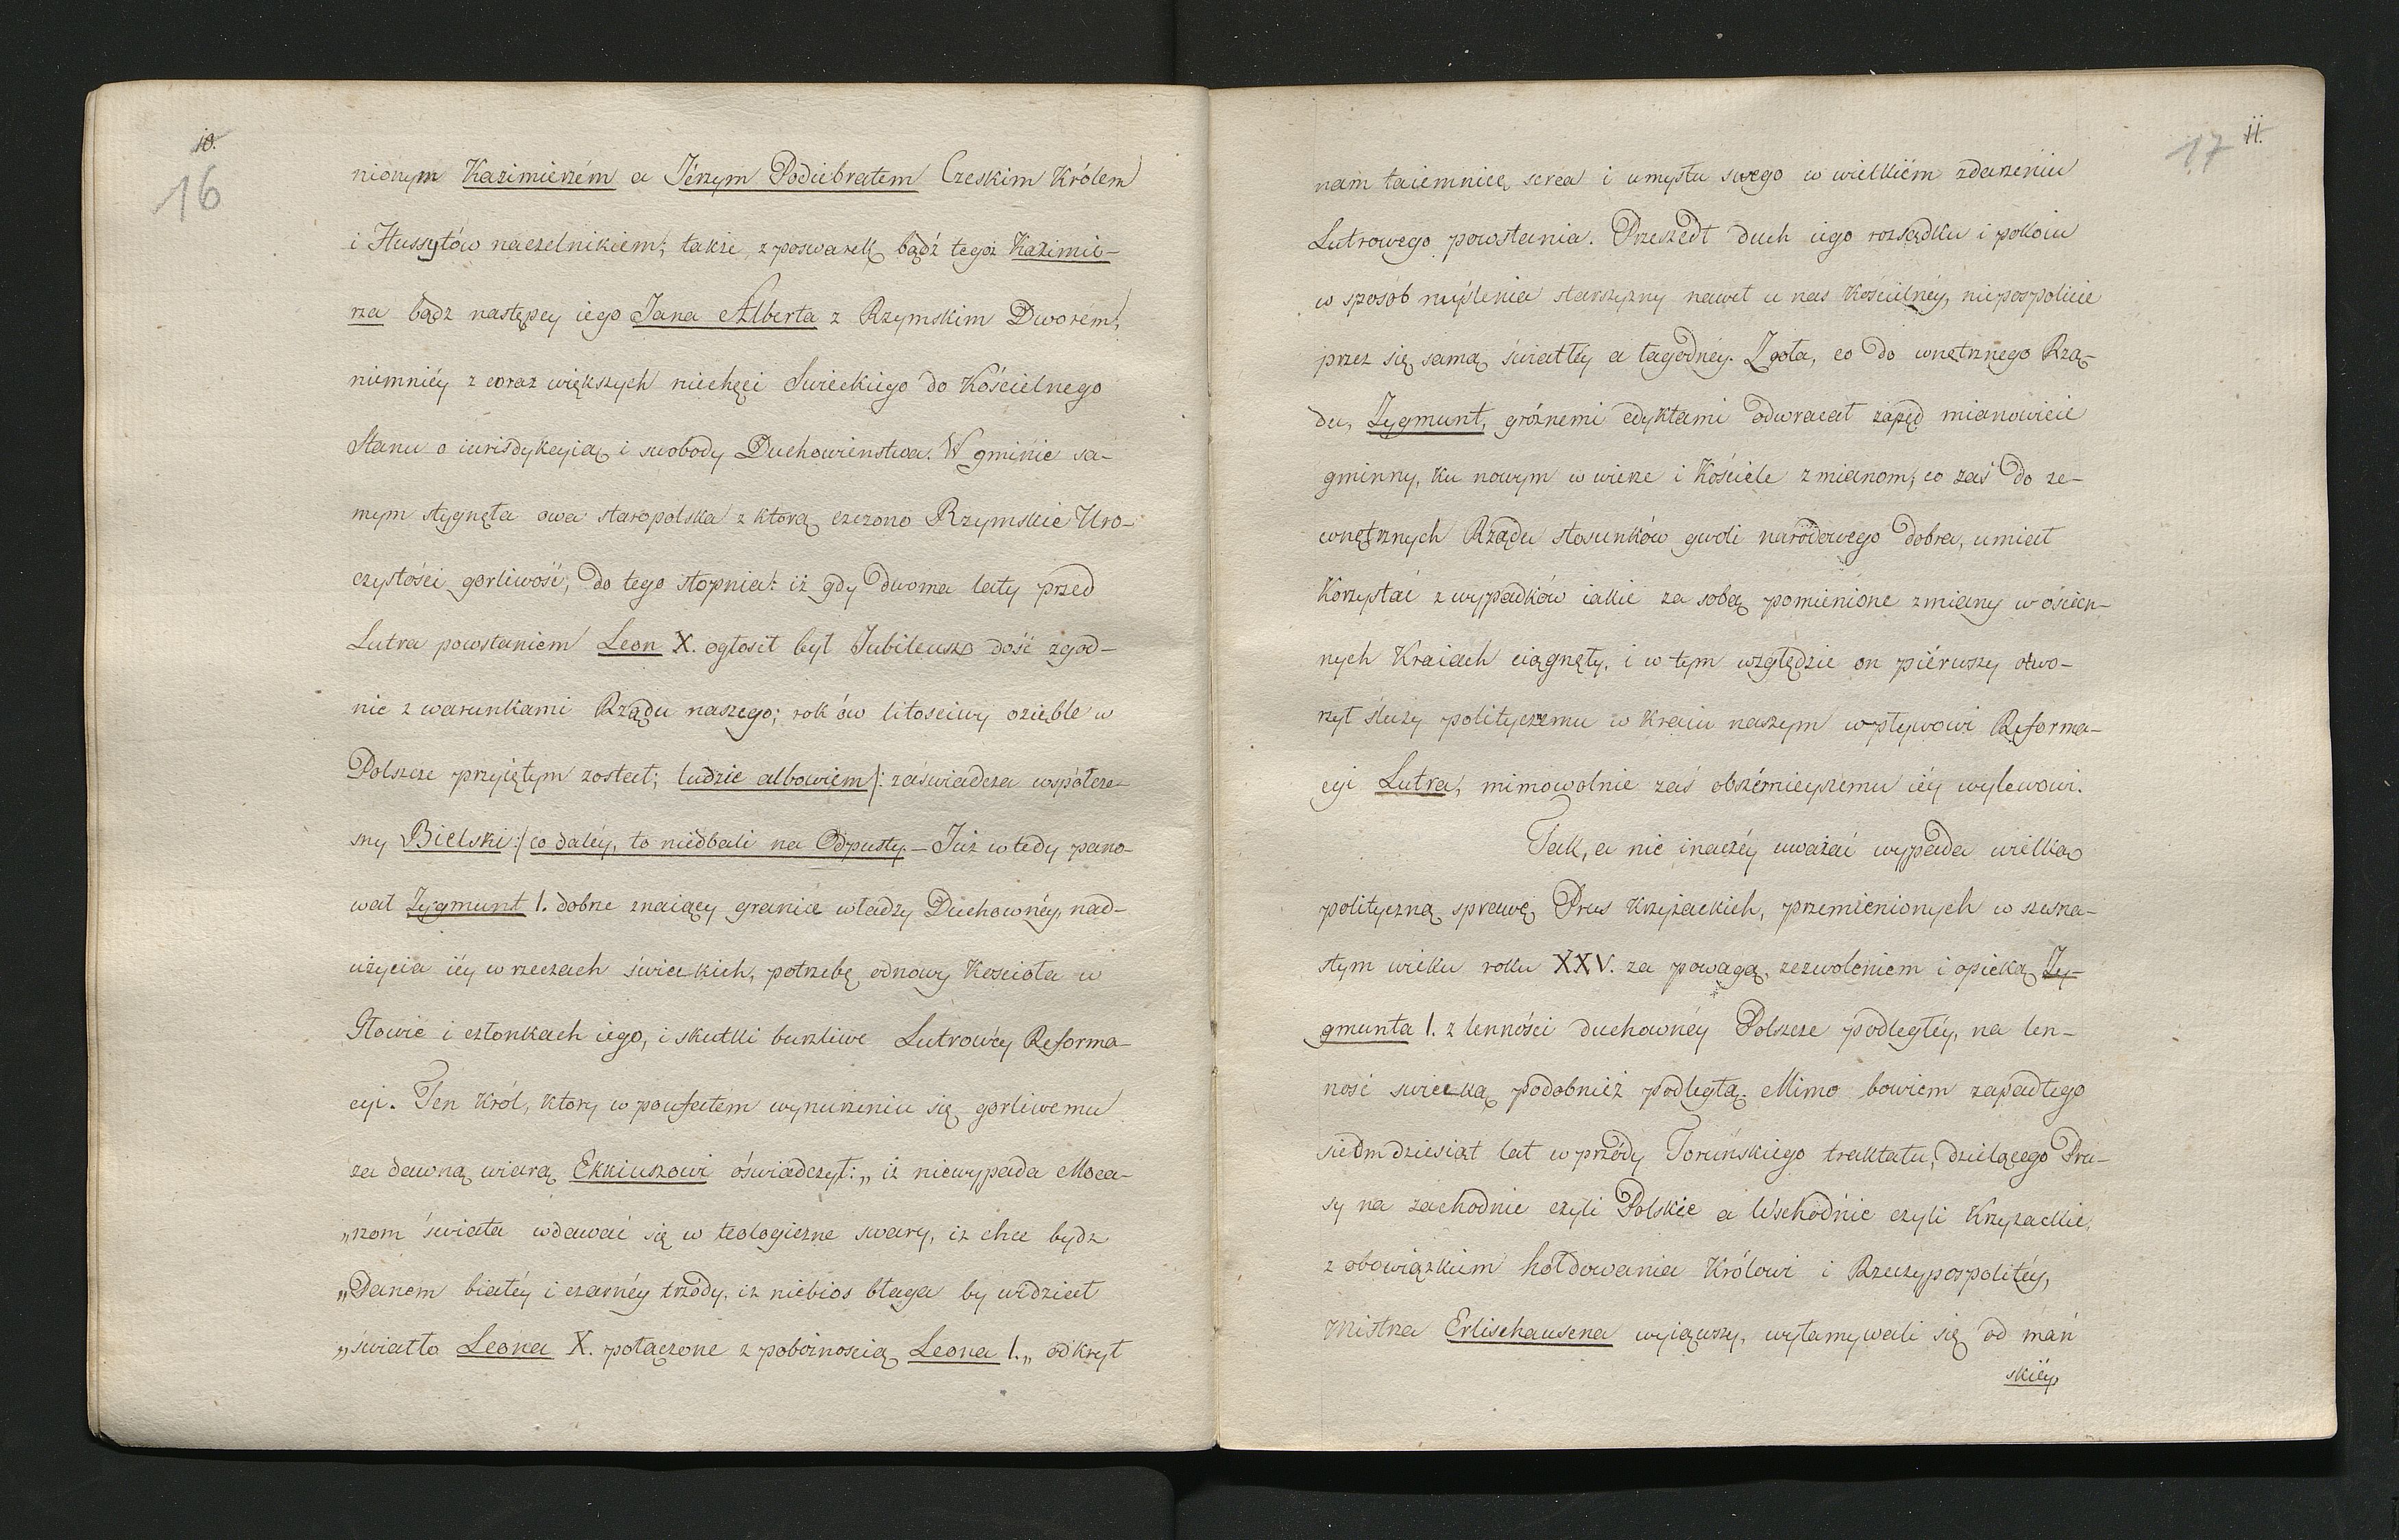 10.
16
nionym Kazimierzém a Jérzym Podiebratem Czeskim Królem
i Hussytów naczelnikiem; także, z poswarek bądź tegoż Kazimie-
rza bądz następcy iego Jana Alberta z Rzymskim Dworém,
niemniéy z coraz większych niechęci Swieckiego do Kościelnego
Stanu o iurisdykcyią i swobody Duchowienstwa. W gminie sa-
mym stygnęła owa staropolska z ktorą czczono Rzymskie Uro-
czystości gorliwość, do tego stopnia: iż gdy dwoma laty przed
Lutra powstaniem Leon X. ogłosił był Jubileusz dość zgod-
nie z warunkami Rządu naszego; rok ów litosciwy oziéble w
Polszcze przyiętym został; ludzie albowiem /: zaświadcza współcze-
sny Bielski :/ co daléy, to niedbali na Odpusty. – Już wtedy pano-
wał Zygmunt I. dobrze znaiący granice władzy Duchownéy, nad-
użycia iéy w rzeczach świeckich, potrzebę odnowy Kościoła w
Głowie i członkach iego, i skutki burzliwe Lutrowéy Reforma-
cyi. Ten Król, ktory w poufałem wynurzeniu się gorliwemu
za dawną wiarą Ekkiuszowi oświadczył: „ iż niewypada Moca-
„rzom świata wdawać się w teologiczne swary, iż chce bydz
„Panem białéy i czarnéy trzódy, iż niebios błaga by widział
„światło Leona X. połączone z pobożnoscią Leona I.„ odkrył
11.
17
nam taiemnicę serca i umysłu swego w wielkiém zdarzeniu
Lutrowego powstania. Przeszedł duch iego rozsądku i pokoiu
w sposób myślenia starszyzny nawet u nas Kościelnéy, niepospolicie
przez się samą światłéy a łagodnéy. Zgoła, co do wnętrznego Rzą-
du, Zygmunt, gróźnemi edyktami odwracał zapęd mianowicie
gminny, ku nowym w wierze i Kościele zmianom; co zaś do ze-
wnętrznych Rządu stosunków gwoli narodowego dobra, umiał
Korzystać z wypadków iakie za sobą pomienione zmiany w ościen-
nych Kraiach ciągnęły, i w tym względzie on piérwszy otwo-
rzył śluzy politycznemu w Kraiu naszym wpływowi Reforma-
cyi Lutra, mimowolnie zaś obszérnieyszemu iéy wylewowi.
Tak, a nie inaczéy uważać wypada wielką
polityczną sprawę Prus Krzyżackich, przemienionych w szesna-
stym wieku roku XXV. za powagą, zezwoleniem i opieką Zy-
gmunta I. z lenności duchownéy Polszcze podległéy, na len-
ność swiecką podobnież podległą. Mimo bowiem zapadłego
siedmdziesiąt lat wprzódy Toruńskiego traktatu, dzielącego Pru-
sy na zachodnie czyli Polskie a Wschodnie czyli Krzyzackie,
z obowiązkiem hołdowania Królowi i Rzeczypospolitéy,
Mistrza Erlischausena wyiąwszy, wyłamywali się od mań
skiéy,